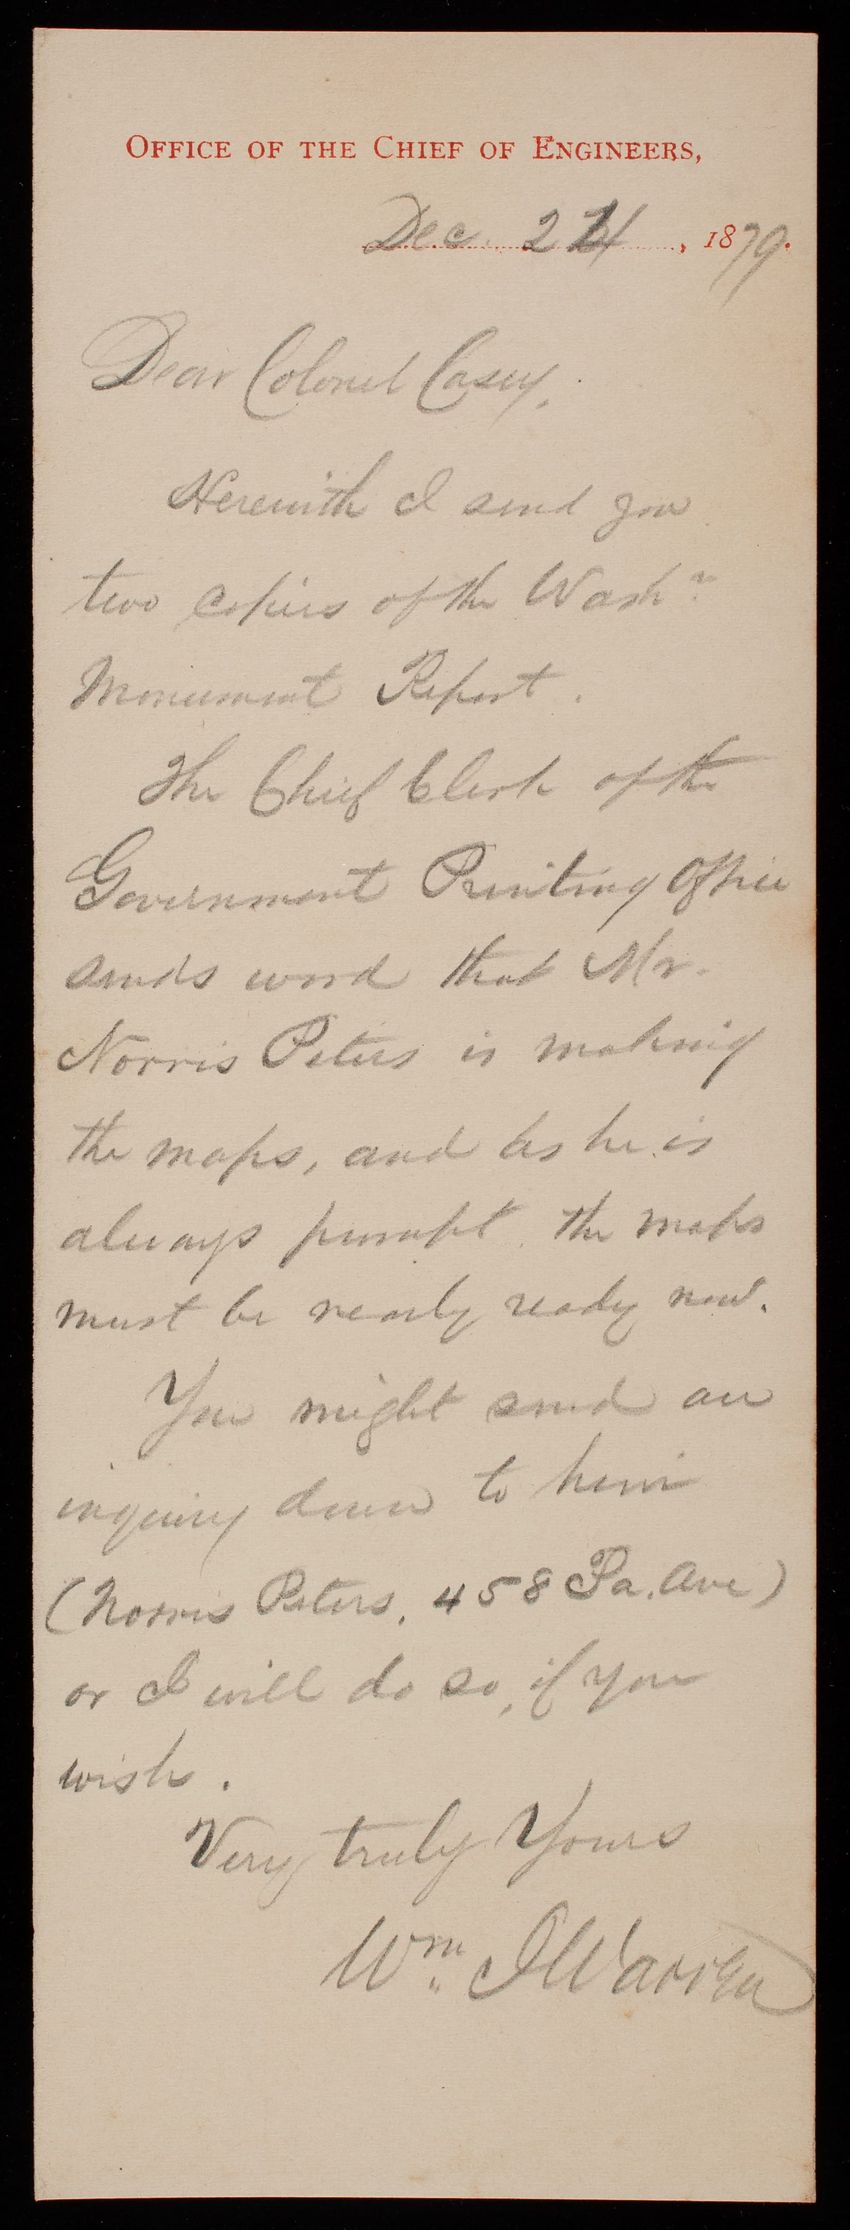 OFFICE OF THE CHIEF OF ENGINEERS,
Dec. 24, 1879.
Dear Colonel Casey,
Herewith I send you
two copies of the Washn
Monument Report.
The Chief Clerk of the
Government Printing Office
sends word that Mr.
Norris Peters is making
the maps, and as he is
always prompt the maps
must be nearly ready now.
You might send an
inquiry down to him
(Norris Peters, 458 Pa. Ave)
or I will do so, if you
wish.
Very truly Yours
Wm. J Warren